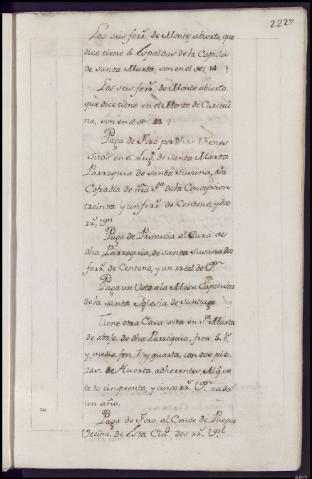 222
Los seis ferr.s de Monte abierto, que
dice tiene à Espaldas de la Capilla
de Santa Marta, son en el de
Los seis ferr.s de Monte abierto,
que dice tiene en el Monte de
son en el de
Paga de Foro por dhas
Sitos en el Lug.r de Santa Marta
Parroquia de Santa Susana, a la
Cofradia de nra S.ra de la Concepcion
treinta y un ferr.s de Centeno, y dos
rr.s v.on
Paga de Primicia al Cura de
dha Parroquia, de Santa Susana dos
ferr.s de Centeno, y un real de v.on
Paga un Voto a la Mesa Capitular
de la Santa Iglesia de Santiago
Tiene otra Casa sita en S.ta Marta
de abajo, de dha Parroquia, fren. 5. v.s
y media, fon. 7 y quarta, con dos pie
zas de Huerta, adherentes, Alq.
cinquenta, y cinco rr.s v.on cada
un año.
Paga de Foro al Conde de
Vecino de esta Ciu.d dos rr.s v.on